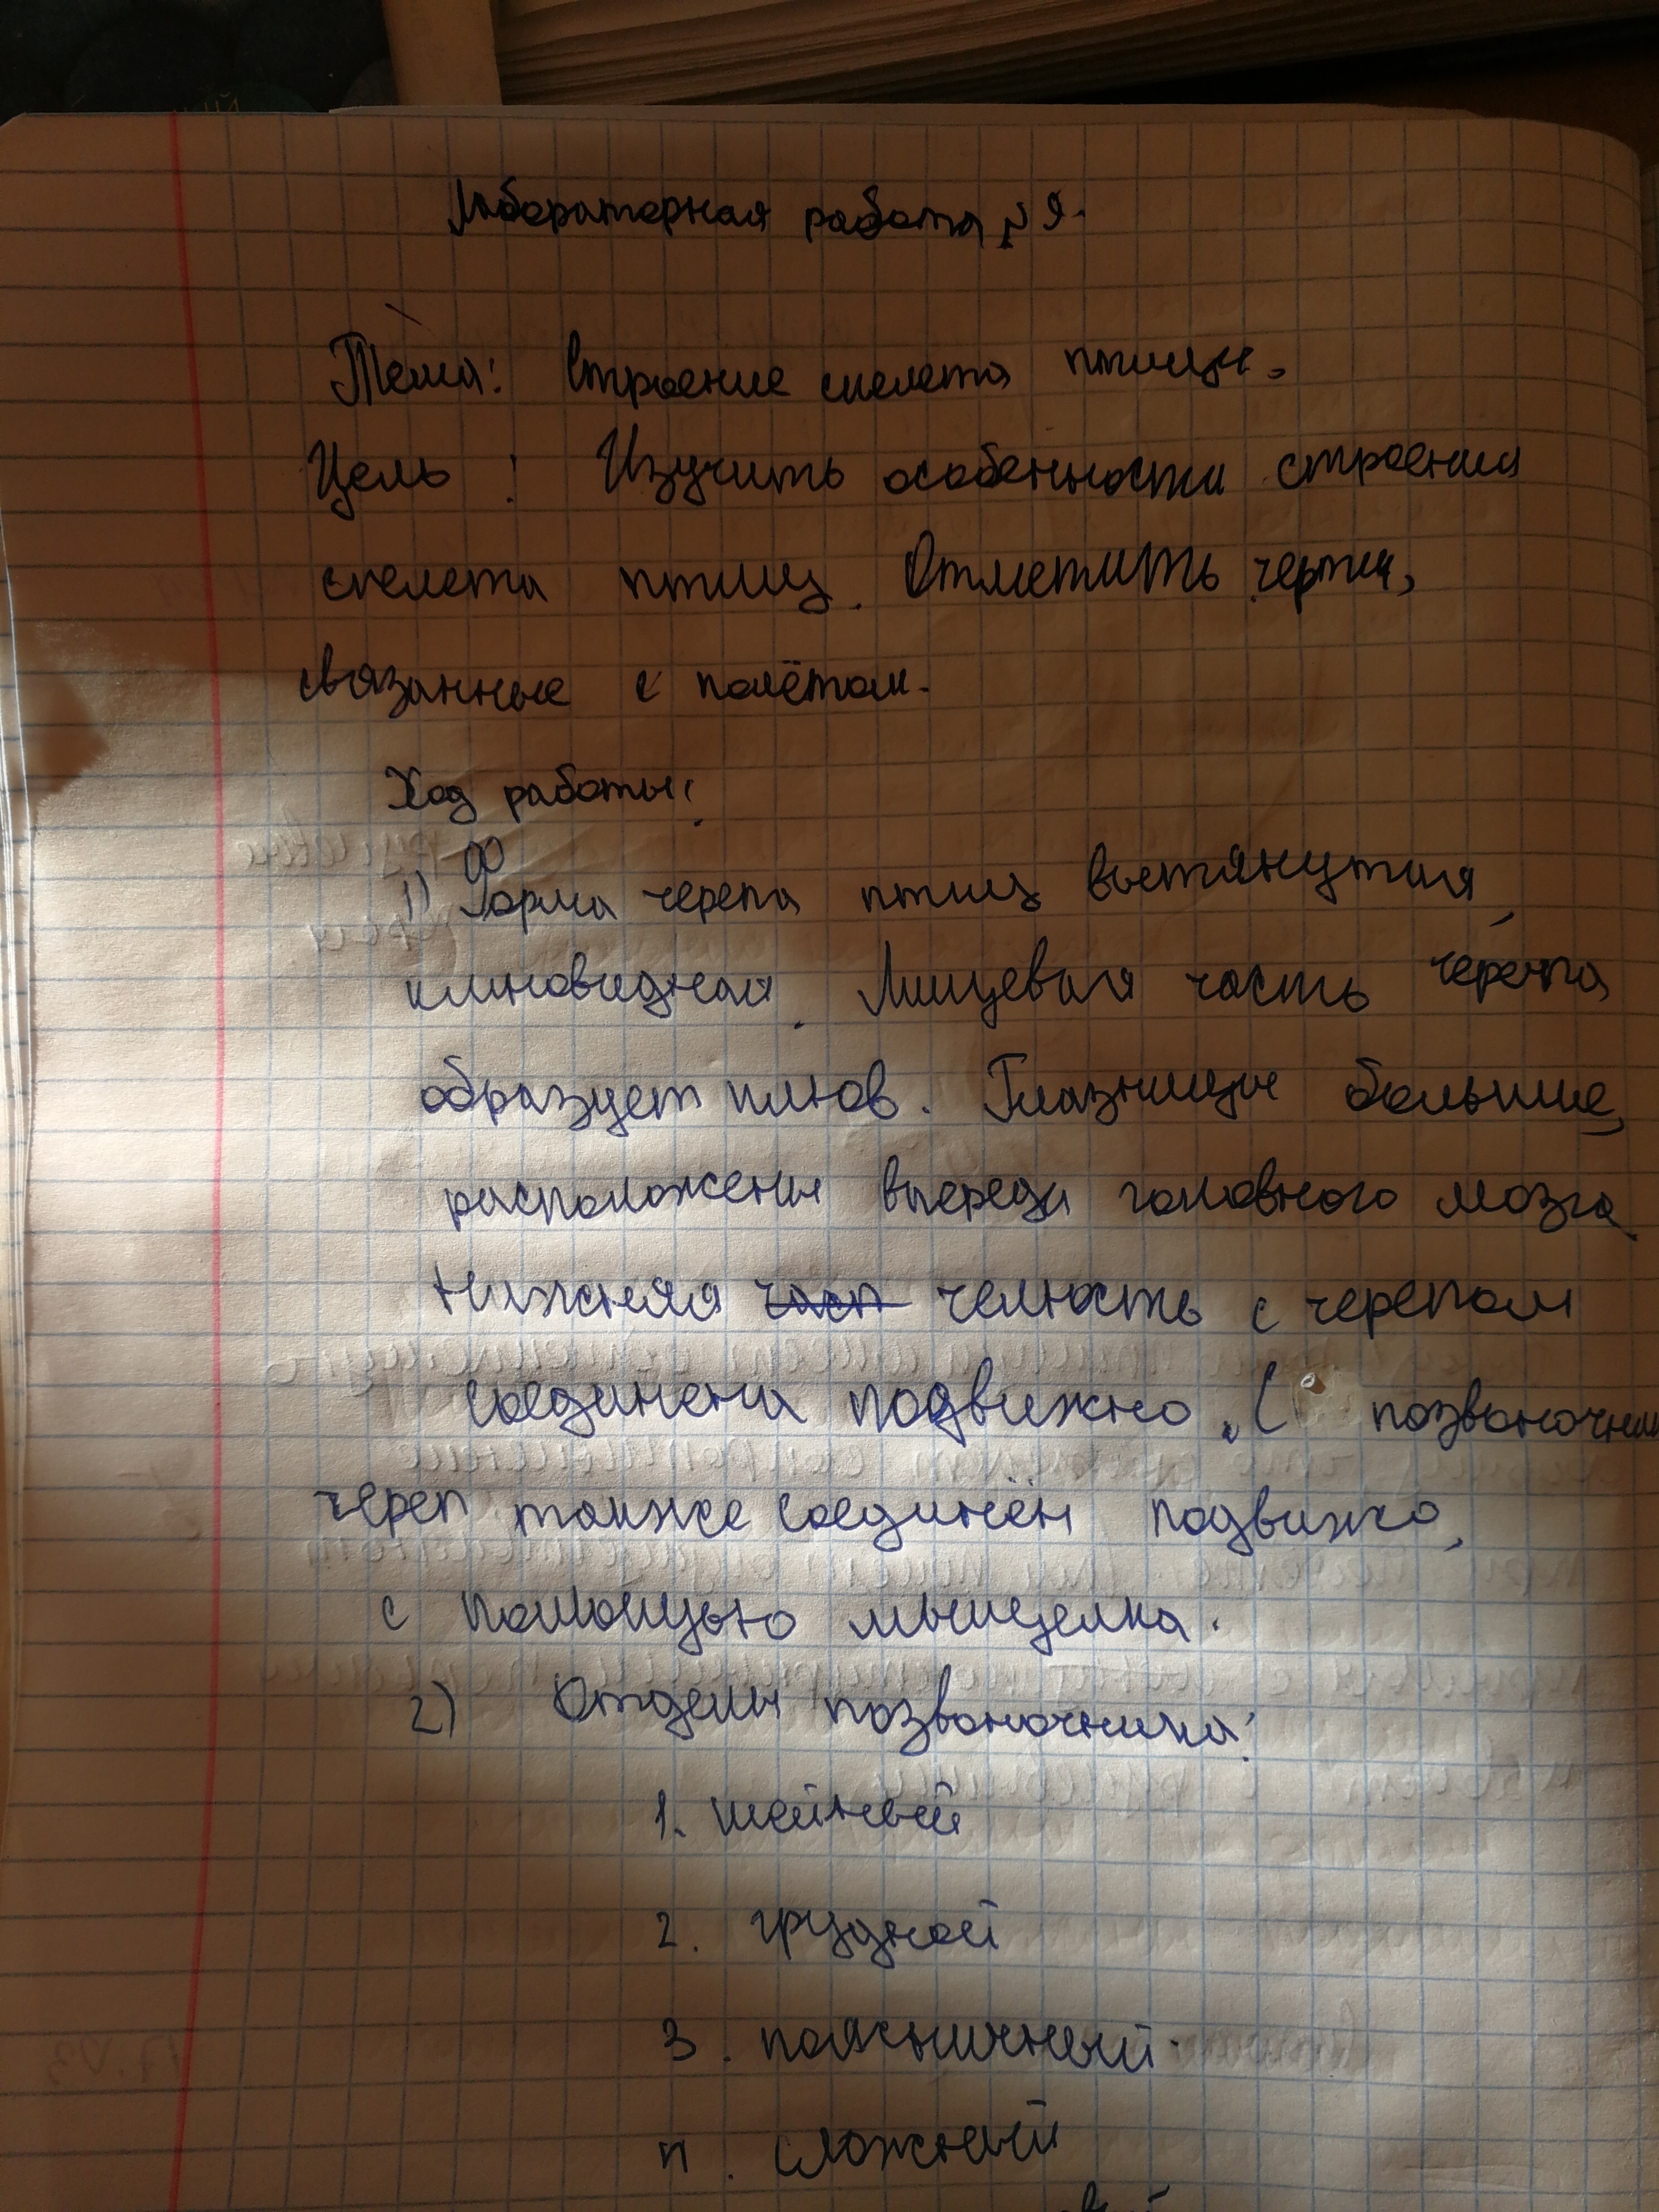 Лабораторная работа №9.
Тема: Строение скелета птицы.
Цель: Изучить особенности строения
скелета птиц. Отметить черты,
связанные с полётом.
Ход работы:
1) Форма черепа птиц вытянутая,
клиновидная. Лицевая часть черепа
образует клюв. Глазницы большие,
расположены впереди головного мозга.
Нижняя част челюсть с черепом
соединена подвижно. С позвоночник
череп также соединён подвижо,
с помощью мыщелка.
2) Отделы позвоночника:
1. шейный
2. грудной
3. поясничный.